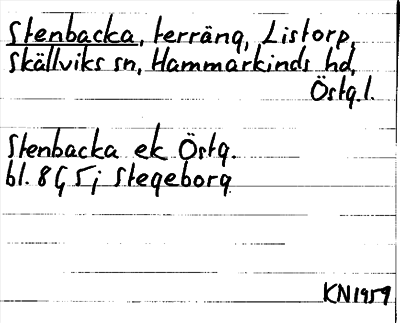 Stenbacka, terräng, Listorp,
Skällviks sn, Hammarkinds hd,
Östg.l.
Stenbacka ek Östg.
bl. 8 G 5 j Stegeborg
KN1959